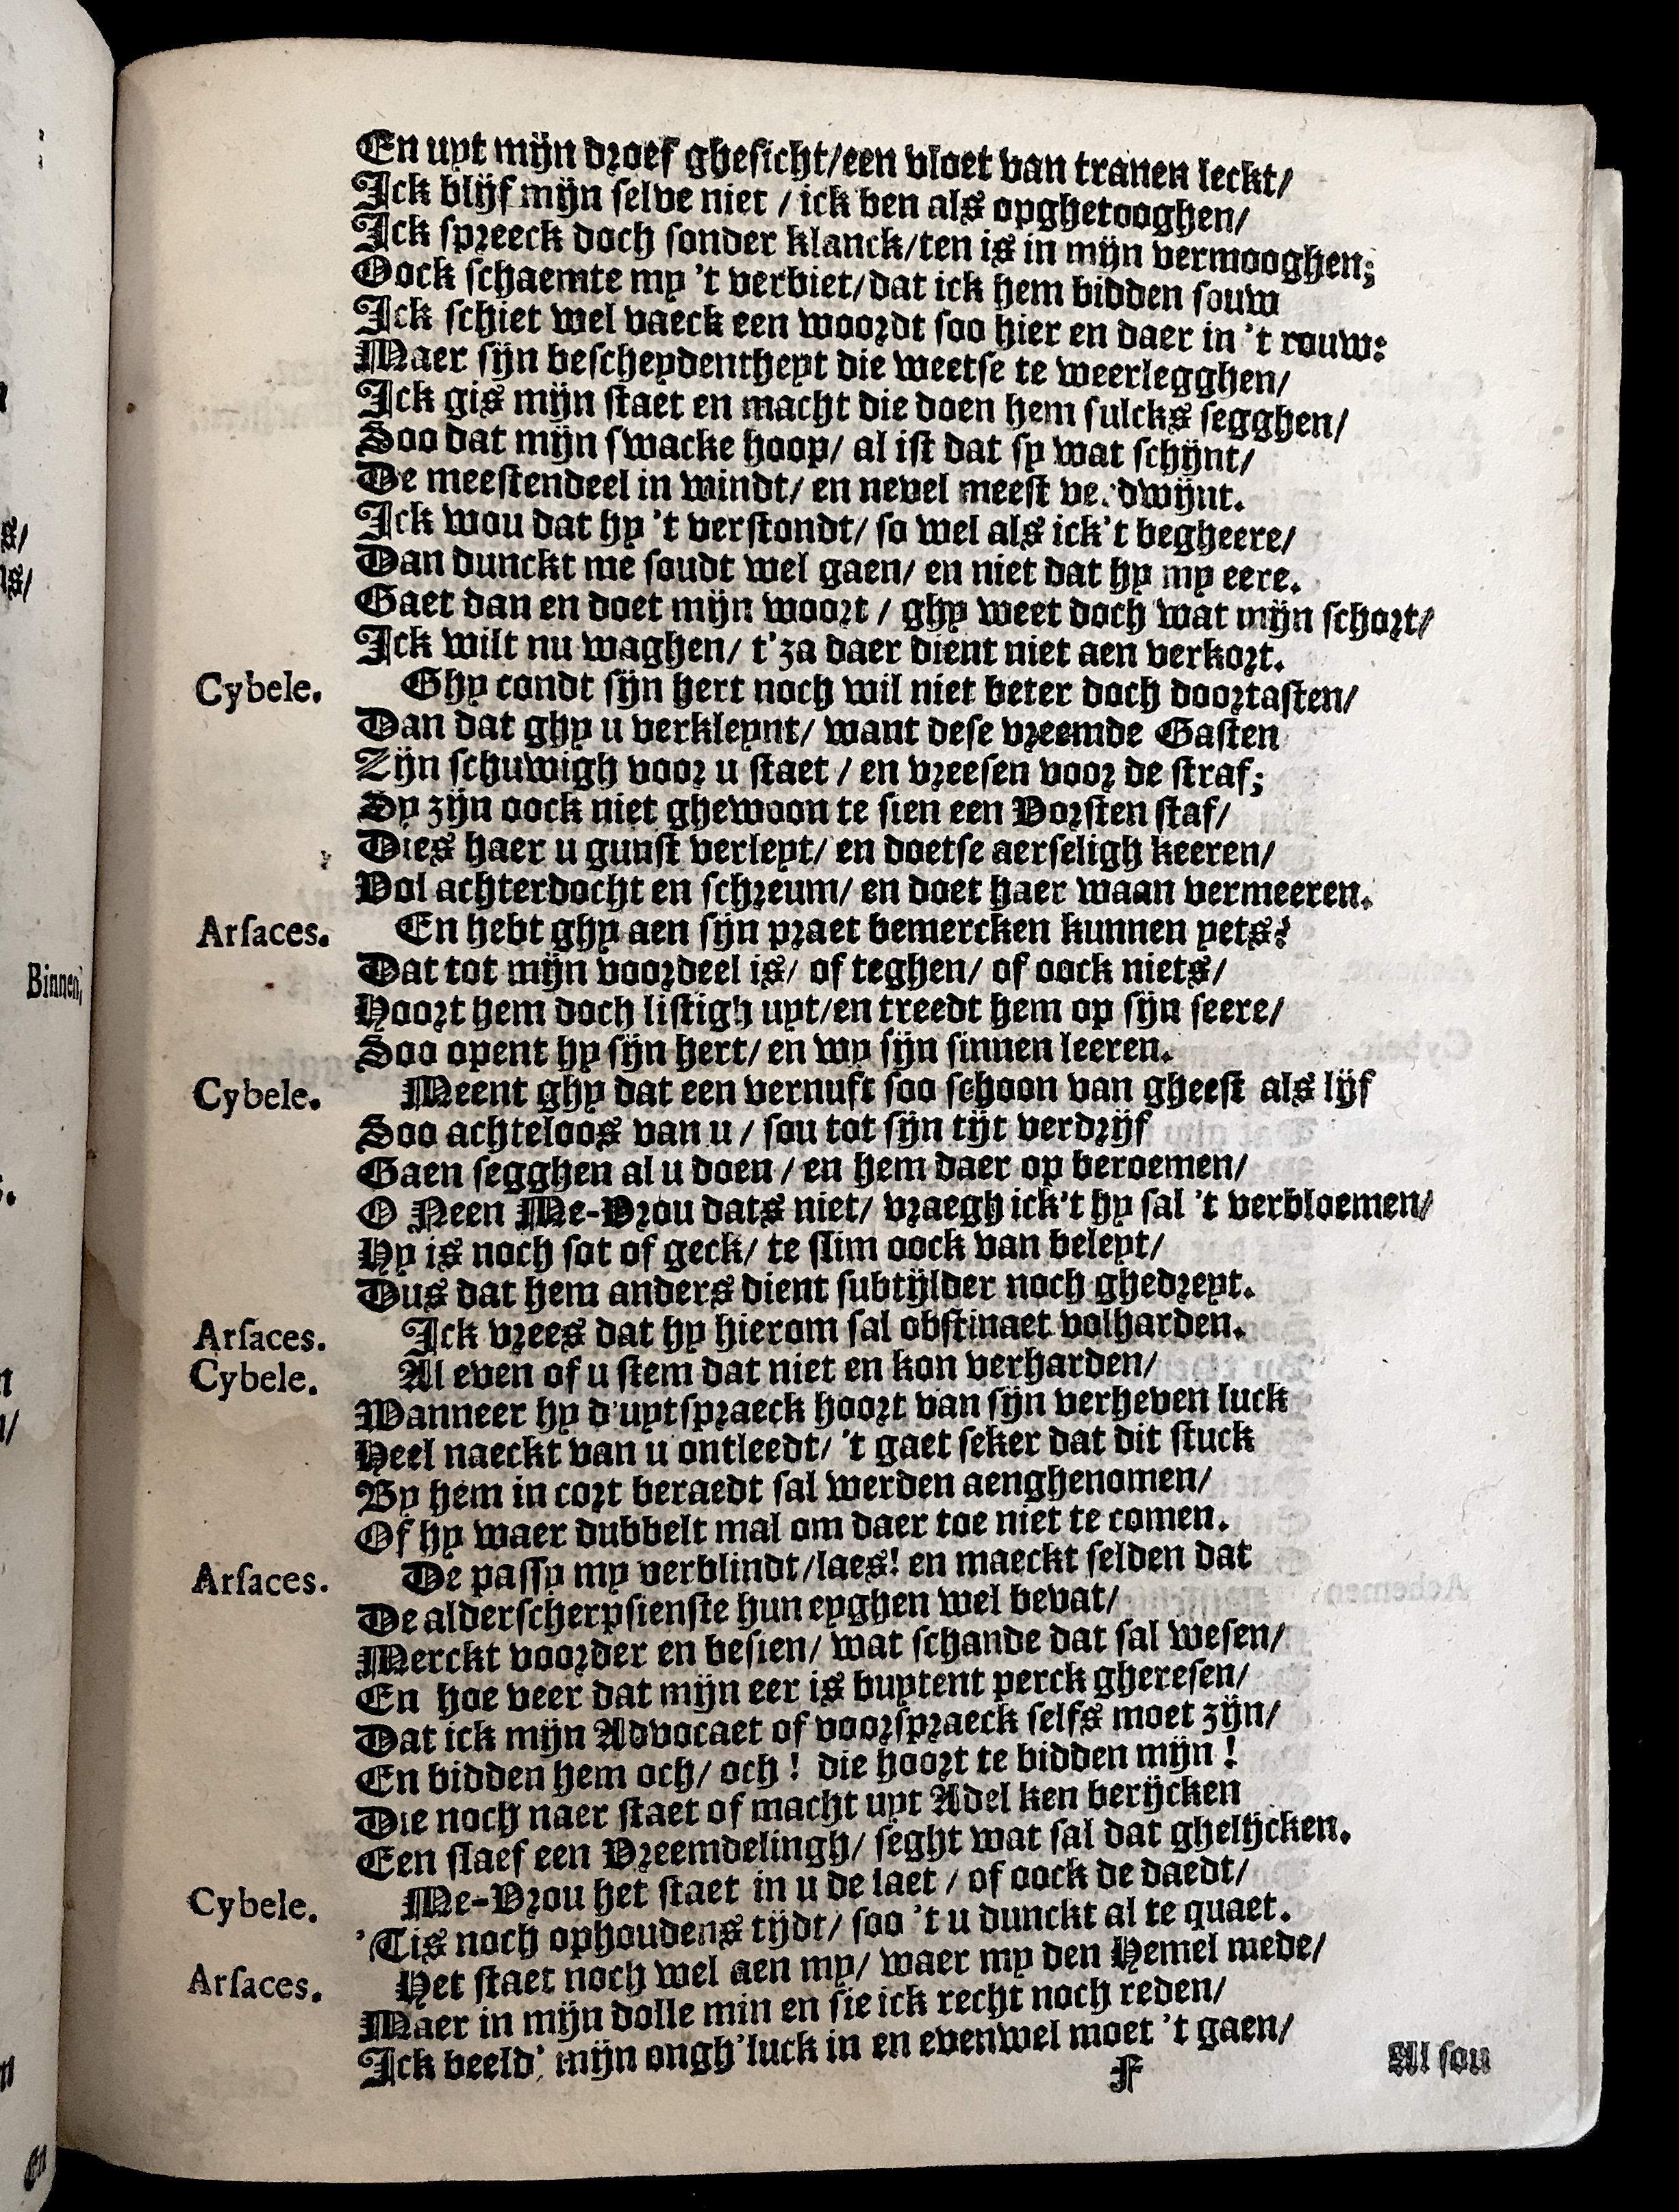 En uyt mijn droef ghesicht/een vloet van tranen leckt/
Ick blijf mijn selve niet / ick ben als opghetooghen/
Ick spreeck doch sonder klanck/ten is in mijn vermooghen;
Oock schaemte my 't verbiet/dat ick hem bidden souw
Ick schiet wel vaeck een woordt soo hier en daer in 't rouw:
Maer sijn bescheydentheyt die weetse te weerlegghen/
Ick gis mijn staet en macht die doen hem sulcks segghen/
Soo dat mijn swacke hoop/ al ist dat sy wat schijnt/
De meestendeel in windt/ en nevel meest verdwijnt.
Ick wou dat hy 't verstondt/ so wel als ick't begheere/
Dan dunckt me soudt wel gaen/ en niet dat hy my eere.
Gaet dan en doet mijn woort / ghy weet doch wat mijn schort/
Ick wilt nu waghen/ t'za daer dient niet aen verkort.
Cybele. Ghy condt sijn hert noch wil niet beter doch doortasten/
Dan dat ghy u verkleynt/ want dese vreemde Gasten
Zijn schuwigh voor u staet / en vreesen voor de straf;
Sy zijn oock niet ghewoon te sien een Vorsten staf/
Dies haer u gunst verleyt/ en doetse aerseligh keeren/
Vol achterdocht en schreum/ en doet haer waan vermeeren.
Arsaces. En hebt ghy aen sijn praet bemercken kunnen yets?
Dat tot mijn voordeel is/ of teghen/ of oock niets/
Hoort hem doch listigh uyt/en treedt hem op sijn seere/
Soo opent hy sijn hert/ en wy sijn sinnen leeren.
Cybele. Meent ghy dat een vernuft soo schoon van gheest als lijf
Soo achteloos van u / sou tot sijn tijt verdrijf
Gaen segghen al u doen / en hem daer op beroemen/
O Neen Me-Vrou dats niet/ vraegh ick't hy sal 't verbloemen/
Hy is noch sot of geck/ te slim oock van beleyt/
Dus dat hem anders dient subtijlder noch ghedreyt.
Arsaces. Ick vrees dat hy hierom sal obstinaet volharden.
Cybele. Al even of u stem dat niet en kon verharden/
Wanneer hy d'uytspraeck hoort van sijn verheven luck
Heel naeckt van u ontleedt/ 't gaet seker dat dit stuck
By hem in cort beraedt sal werden aenghenomen/
Of hy waer dubbelt mal om daer toe niet te comen.
Arsaces. De passy my verblindt/laes! en maeckt selden dat
De alderscherpsienste hun eyghen wel bevat/
Merckt voorder en besien/ wat schande dat sal wesen/
En hoe veer dat mijn eer is buytent perck gheresen/
Dat ick mijn Advocaet of voorspraeck selfs moet zijn/
En bidden hem och/ och ! die hoort te bidden mijn !
Die noch naer staet of macht uyt Adel ken berijcken
Een slaef een Vreemdelingh/ seght wat sal dat ghelijcken.
Cybele. Me-Vrou het staet in u de laet / of oock de daedt/
'Tis noch ophoudens tijdt/ soo 't u dunckt al te quaet.
Arsaces. Het staet noch wel aen my/ waer my den Hemel mede/
Maer in mijn dolle min en sie ick recht noch reden/
Ick beeld' mijn ongh'luck in en evenwel moet 't gaen/
F
Al sou
Binnen